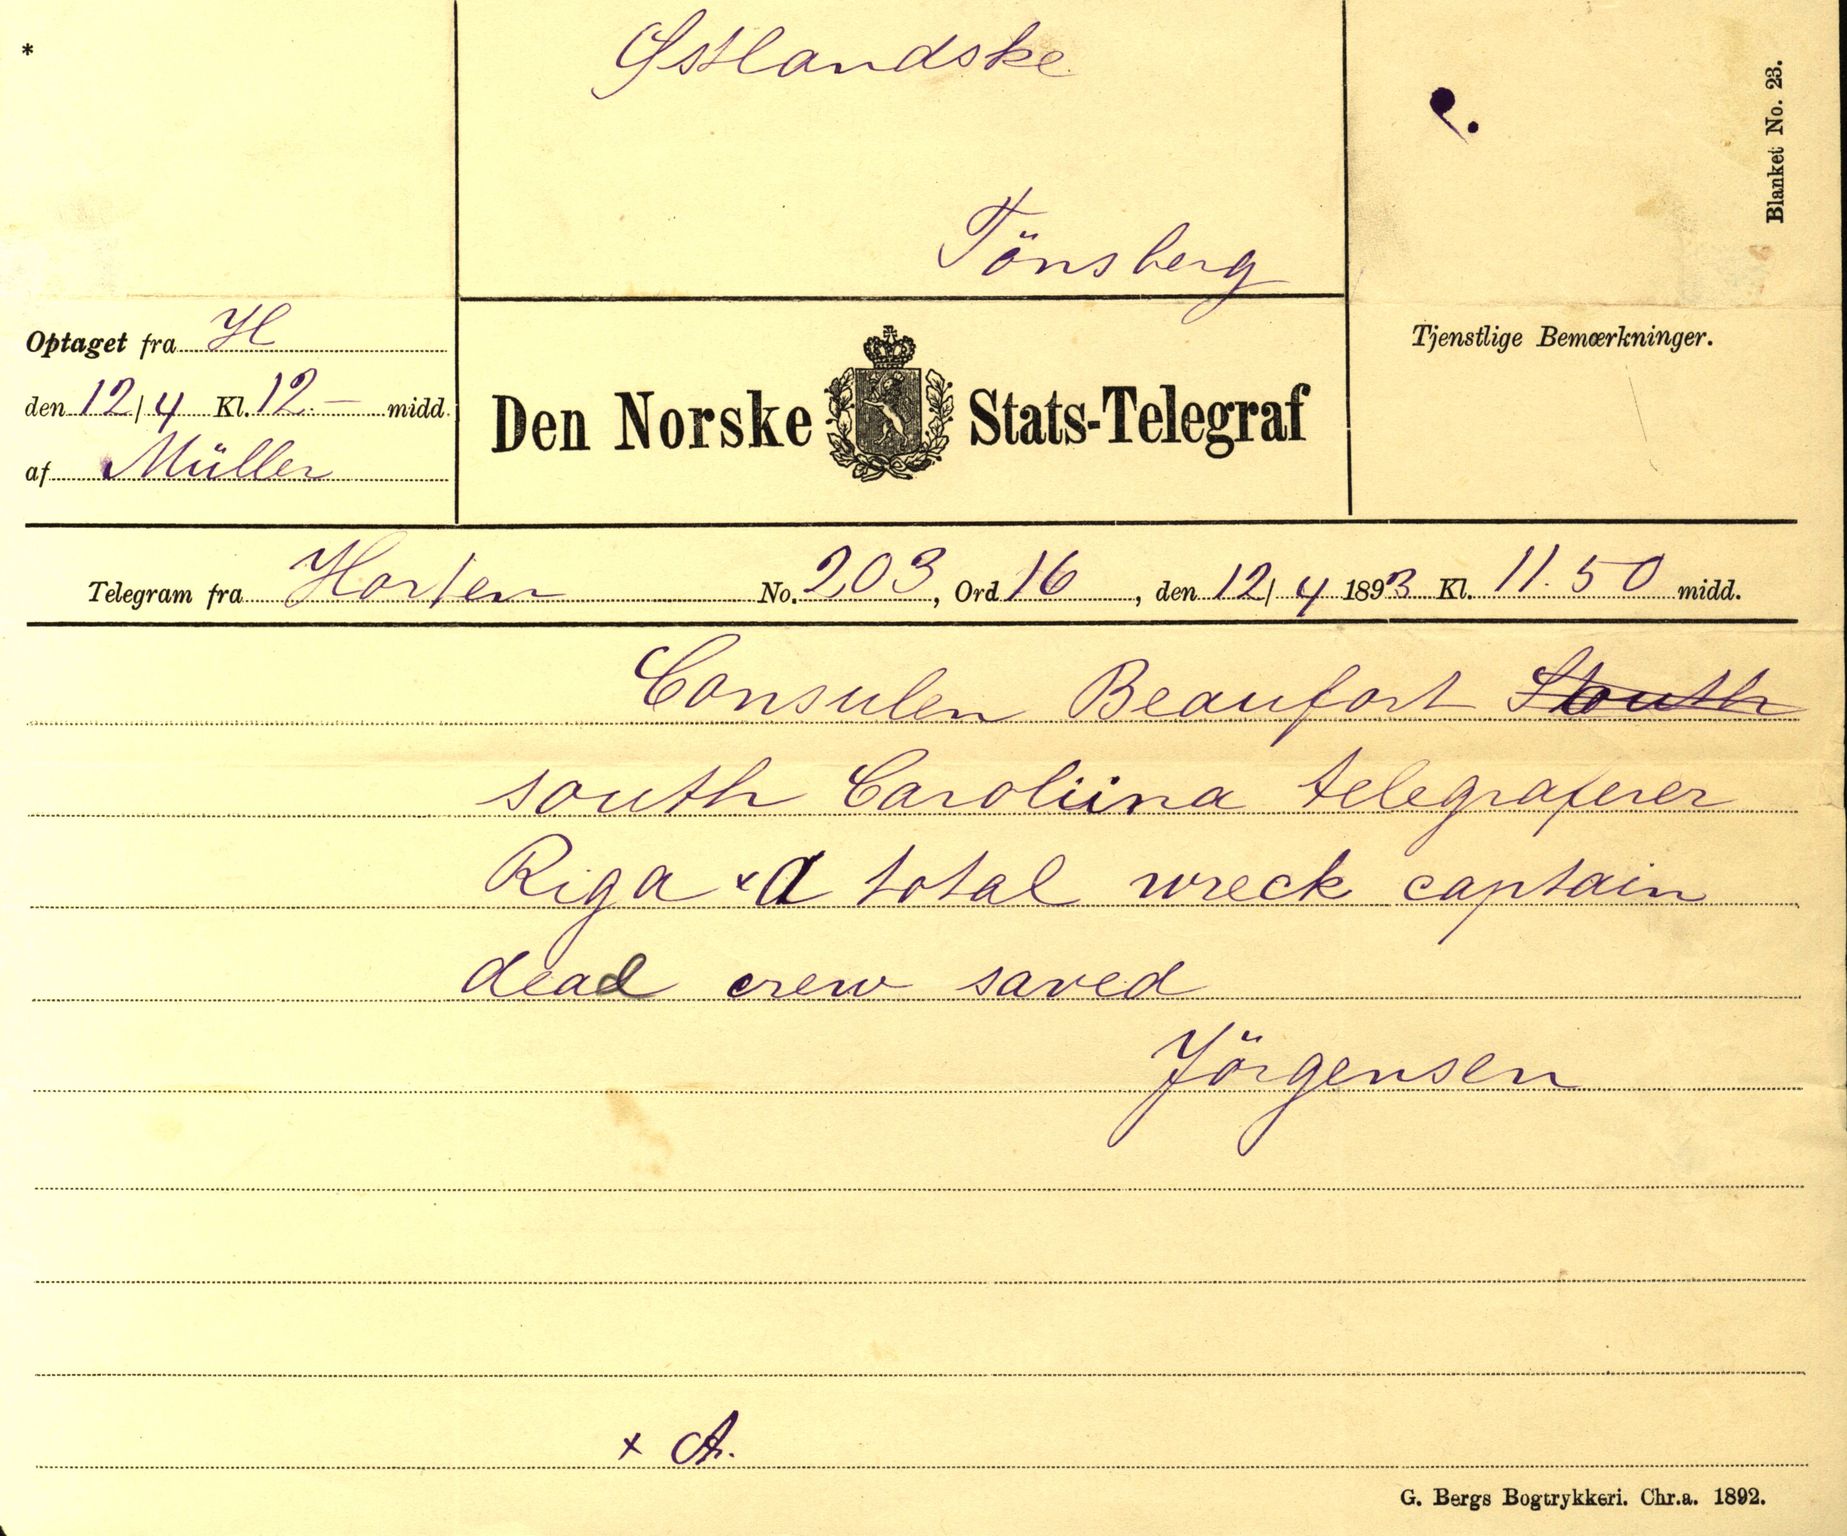 *
Østlandske
Tönsberg
Blanket No. 23.
Optaget fra H
den 12/4 Kl. 12.— midd.
af Müller
Den Norske Stats-Telegraf
Tjenstlige Bemærkninger.
Telegram fra Horten No. 203, Ord 16, den 12/4 1893 Kl. 11.50 midd.
Consulen Beaufort South
south Caroliina telegraferer
Riga × A total wreck captain
dead crew saved
Jörgensen
× A.
G. Bergs Bogtrykkeri. Chr.a. 1892.